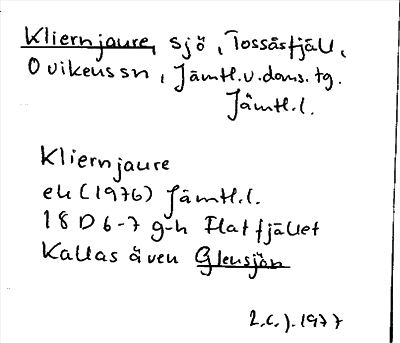 Kliernjaure, sjö, Tossåsfjäll,
Ovikens sn, Jämtl.v.doms.tg.
Jämtl.l.
Kliernjaure
ek (1976) Jämtl.l.
18 D 6-7 g-h Flatfjället
Kallas även Glensjön
1977